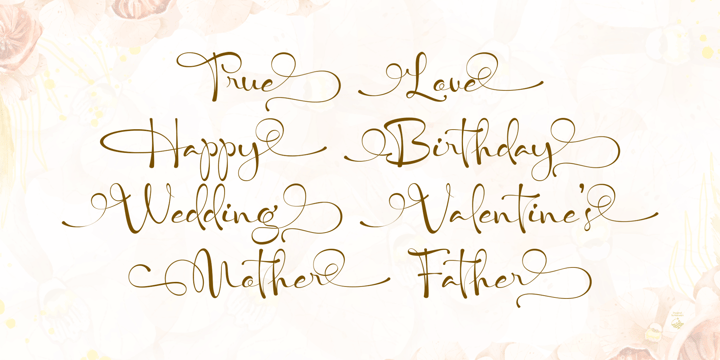 True Love
Happy Birthday
Wedding Valentine's
Mother Father